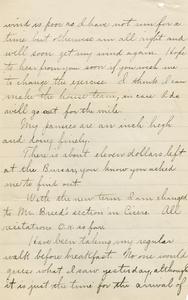 wind is poor as I have not run for a
time but otherwise am all right and
will soon get my wind again. Hope
to hear from you soon if you wish me
to change the exercise. I think I can
make the house team, in case I do
will go out for the mile.
My pansies are an inch high
and doing finely.
There is about eleven dollars left
at the Bursar, you know you asked
me to find out.
With the new term I am changed
to Mr. Breed's section in Cicero. All
recitations O.K. so far.
Have been taking my regular
walk before breakfast. No one would
guess what I saw yesterday, although
it is just the time for the arrival of